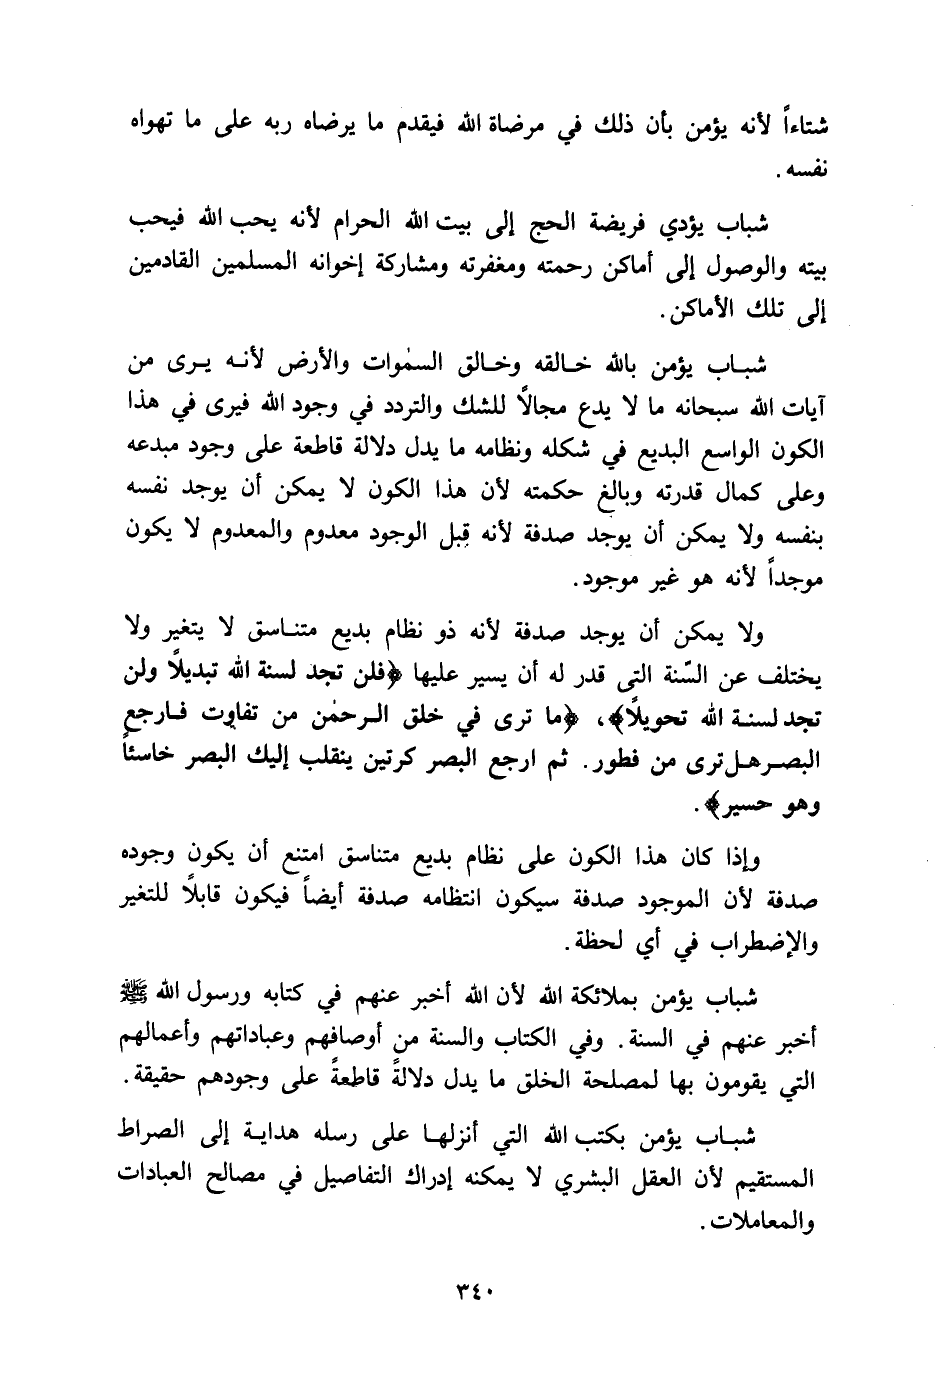 شتاءاً لأنه يؤمن بأن ذلك في مرضاة الله فيقدم ما يرضاه ربه على ما تهواه
نفسه .
شباب يؤدي فريضة الحج إلى بيت الله الحرام لأنه يحب الله فيحب
بيته والوصول إلى أماكن رحمته ومغفرته ومشاركة إخوانه المسلمين القادمين
إلى تلك الأماكن .
شباب يؤمن بالله خالقه وخالق السمٰوات والأرض لأنه يرى من
آيات الله سبحانه ما لا يدع مجالاً للشك والتردد في وجود الله فيرى في هذا
الكون الواسع البديع في شكله ونظامه ما يدل دلالة قاطعة على وجود مبدعه
وعلى كمال قدرته وبالغ حكمته لأن هذا الكون لا يمكن أن يوجد نفسه
بنفسه ولا يمكن أن يوجد صدفة لأنه قبل الوجود معدوم والمعدوم لا يكون
موجداً لأنه هو غير موجود .
ولا يمكن أن يوجد صدفة لأنه ذو نظام بديع متناسق لا يتغير ولا
يختلف عن السّنة التي قدر له أن يسير عليها ﴿فلن تجد لسنة الله تبديلًا ولن
تجد لسنة الله تحويلًا﴾، ﴿ما ترى في خلق الرحمٰن من تفاوت فارجع
البصر هل ترى من فطور . ثم ارجع البصر كرتين ينقلب إليك البصر خاسئاً
وهو حسير﴾ .
وإذا كان هذا الكون على نظام بديع متناسق امتنع أن يكون وجوده
صدفة لأن الموجود صدفة سيكون انتظامه صدفة أيضاً فيكون قابلاً للتغير
والإضطراب في أي لحظة .
شباب يؤمن بملائكة الله لأن الله أخبر عنهم في كتابه ورسول الله ﷺ
أخبر عنهم في السنة . وفي الكتاب والسنة من أوصافهم وعباداتهم وأعمالهم
التي يقومون بها لمصلحة الخلق ما يدل دلالةً قاطعةً على وجودهم حقيقة .
شباب يؤمن بكتب الله التي أنزلها على رسله هداية إلى الصراط
المستقيم لأن العقل البشري لا يمكنه إدراك التفاصيل في مصالح العبادات
والمعاملات .
٣٤٠